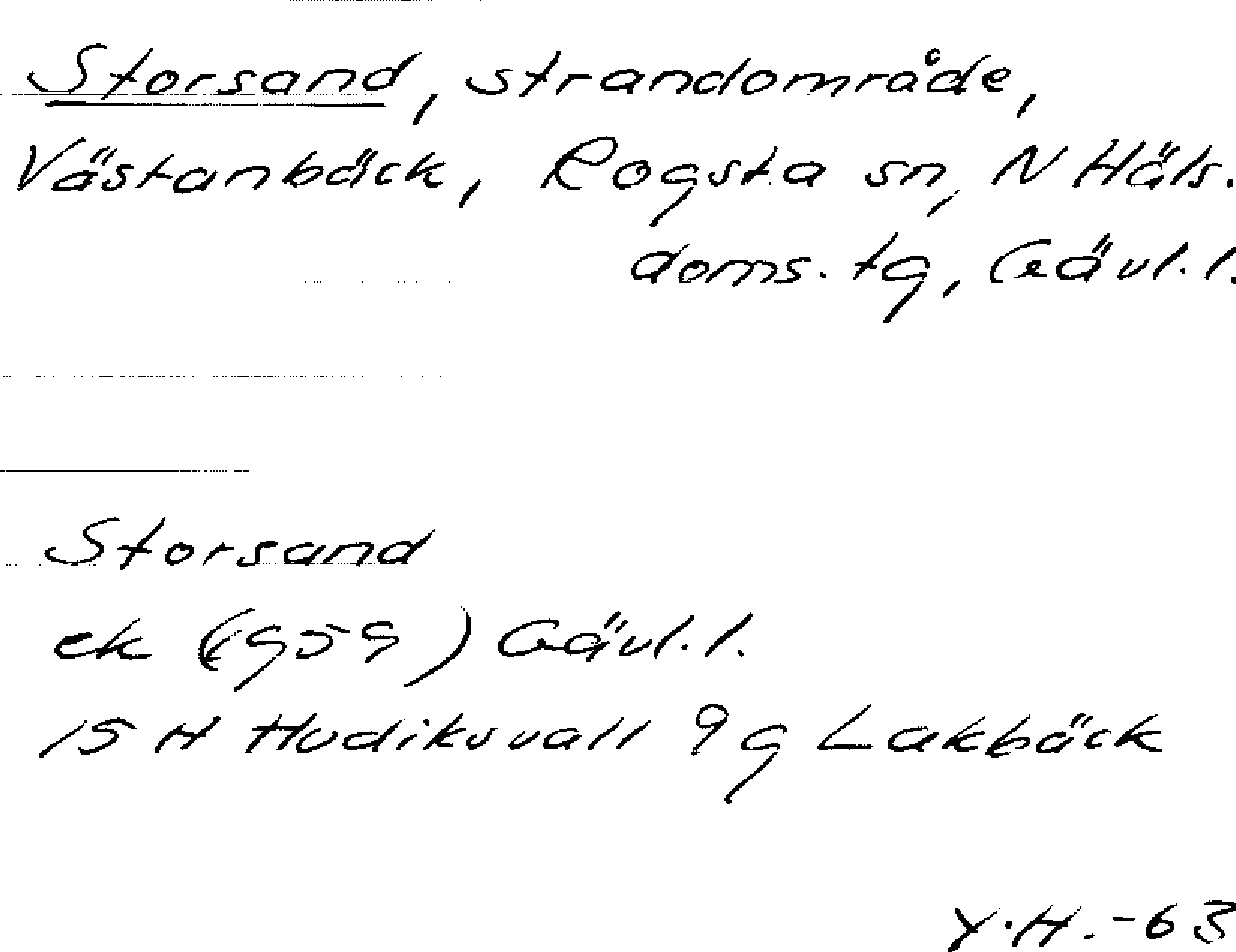 Storsand, strandområde,
Västanbäck, Rogsta sn, N Häls.
doms. tg, Gävl.l.
Storsand
ek (1959) Gävl.l.
15 H Hudiksvall 9 g Lakbäck
Y.H.-63